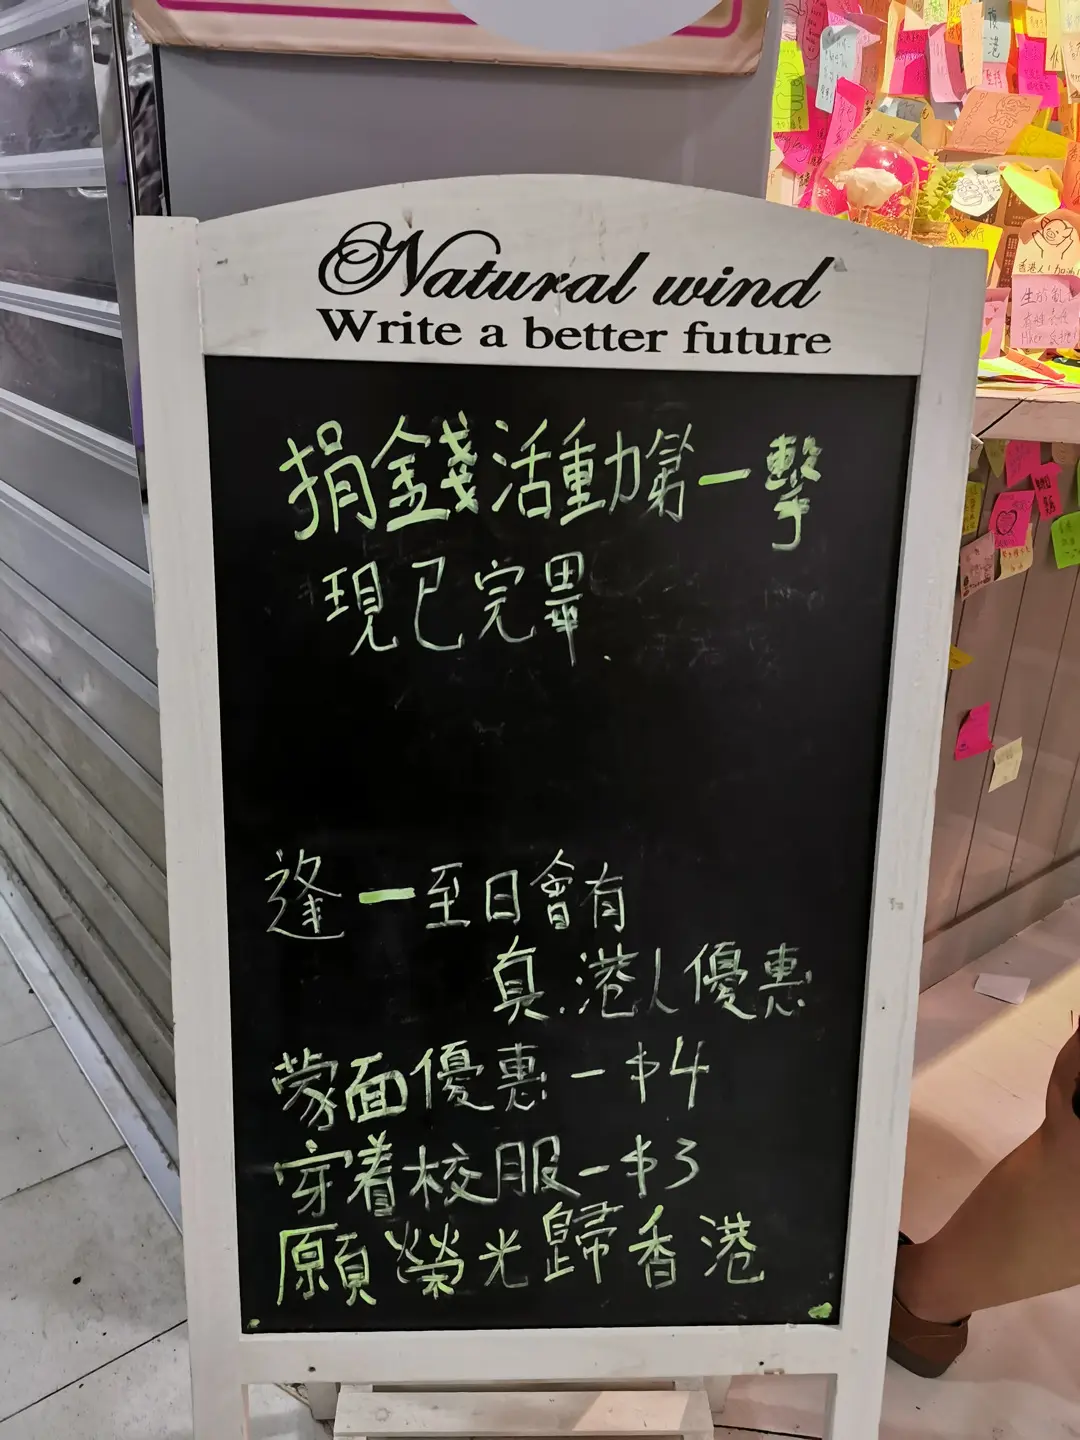 Natural wind
Write a better future
捐錢活動第一擊
現已完畢.
逢一至日會有
真.港人優惠
蒙面優惠-$4
穿着校服-$3
願榮光歸香港
香港人!加油